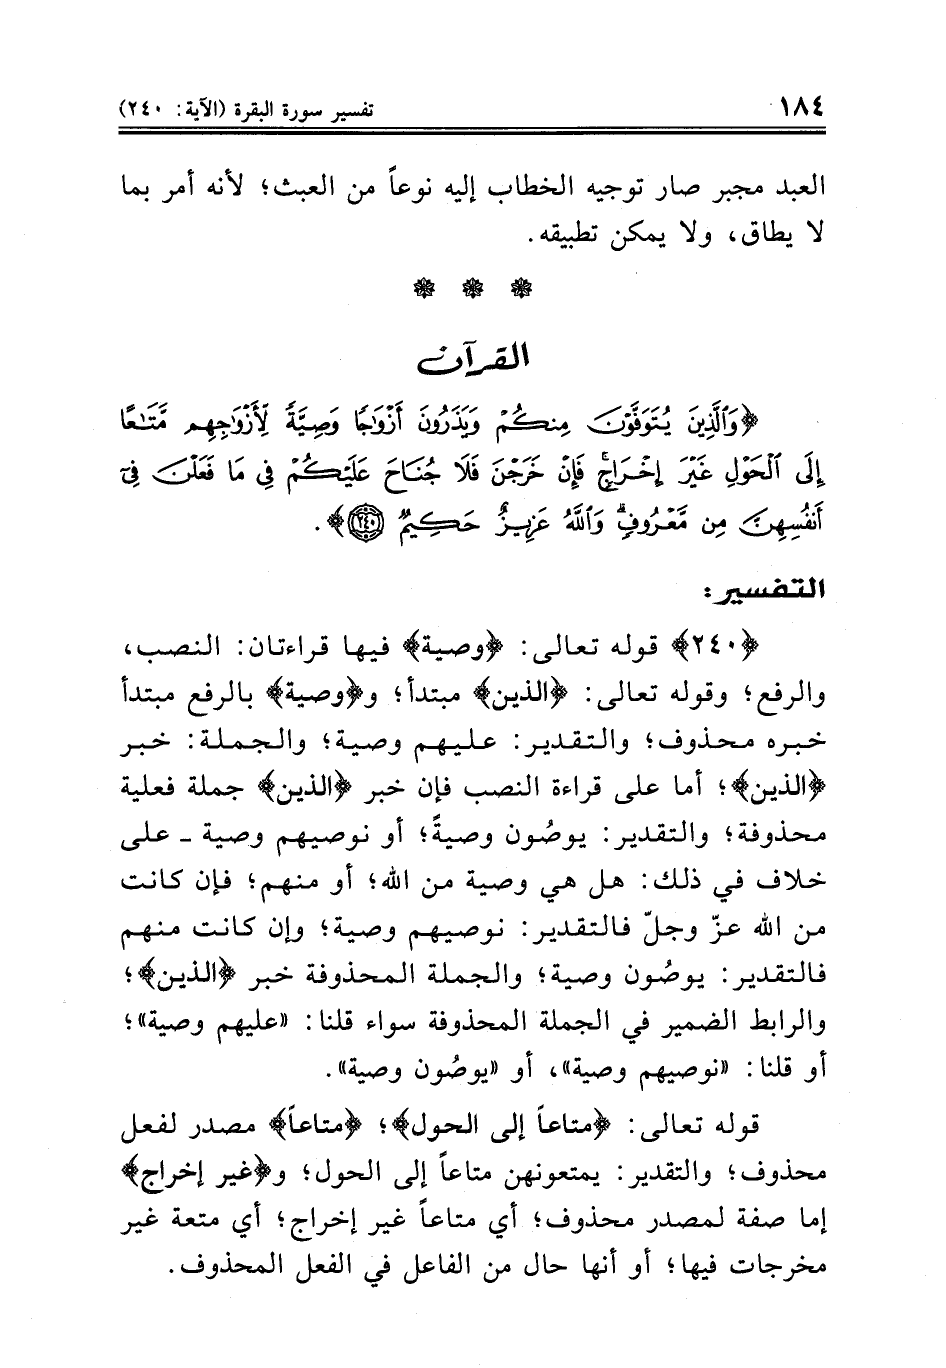 ١٨٤ تفسير سورة البقرة (الآية: ٢٤٠)
العبد مجبر صار توجيه الخطاب إليه نوعاً من العبث؛ لأنه أمر بما
لا يطاق، ولا يمكن تطبيقه.
القرآن
﴿وَٱلَّذِينَ يُتَوَفَّوْنَ مِنكُمْ وَيَذَرُونَ أَزْوَٰجًا وَصِيَّةً لِّأَزْوَٰجِهِم مَّتَـٰعًا
إِلَى ٱلْحَوْلِ غَيْرَ إِخْرَاجٍۚ فَإِنْ خَرَجْنَ فَلَا جُنَاحَ عَلَيْكُمْ فِى مَا فَعَلْنَ فِىٓ
أَنفُسِهِنَّ مِن مَّعْرُوفٍۗ وَٱللَّهُ عَزِيزٌ حَكِيمٌ ٢٤٠﴾.
التفسير:
﴿٢٤٠﴾ قوله تعالى: ﴿وصية﴾ فيها قراءتان: النصب،
والرفع؛ وقوله تعالى: ﴿الذين﴾ مبتدأ؛ و﴿وصية﴾ بالرفع مبتدأ
خبره محذوف؛ والتقدير: عليهم وصية؛ والجملة: خبر
﴿الذين﴾؛ أما على قراءة النصب فإن خبر ﴿الذين﴾ جملة فعلية
محذوفة؛ والتقدير: يوصُون وصيةً؛ أو نوصيهم وصية ـ على
خلاف في ذلك: هل هي وصية من الله؛ أو منهم؛ فإن كانت
من الله عزّ وجلّ فالتقدير: نوصيهم وصية؛ وإن كانت منهم
فالتقدير: يوصُون وصية؛ والجملة المحذوفة خبر ﴿الذين﴾؛
والرابط الضمير في الجملة المحذوفة سواء قلنا: «عليهم وصية»؛
أو قلنا: «نوصيهم وصية»، أو «يوصُون وصية».
قوله تعالى: ﴿متاعاً إلى الحول﴾؛ ﴿متاعاً﴾ مصدر لفعل
محذوف؛ والتقدير: يمتعونهن متاعاً إلى الحول؛ و﴿غير إخراج﴾
إما صفة لمصدر محذوف؛ أي متاعاً غير إخراج؛ أي متعة غير
مخرجات فيها؛ أو أنها حال من الفاعل في الفعل المحذوف.